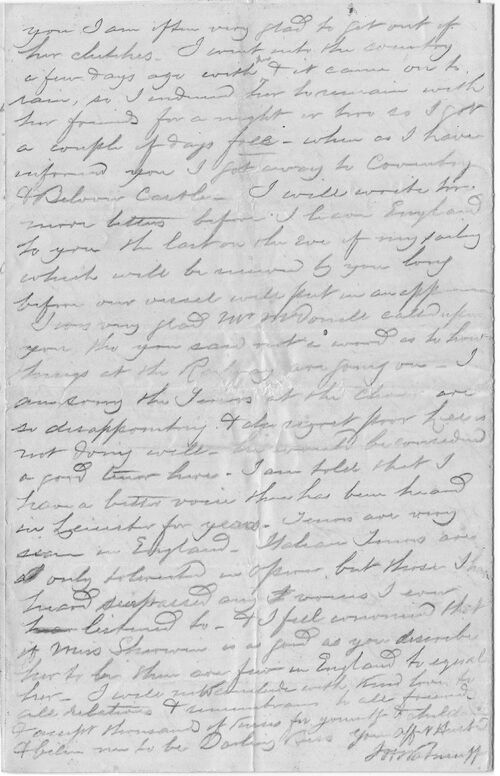 you I am often very glad to get out of
her clutches - I went into the country
a few days ago with her & it came on to
rain, so I induced her to remain with
her friends for a night or two so I got
a couple of days free - when as I have
informed you I got away to Coventry
& Belvoir Castle - I will write two
more letters before I leave England
to you the last on the eve of my sailing
which will be received by you long
before our vessel will put in an appearance
I was very glad Mr McDonell called upon
you, tho you said not a word as to how
things at the Railway are going on - I
am sorry the Tenors at the are
so disappointing & also regret poor is
not doing well - he would be considered
a good tenor here - I am told that I
have a better voice than has been heard
in Leicester for years - Tenors are very
scarce in England - Italian Tenors are
only tolerated in opera but those I have
heard surpassed any voices I ever
listened to - & I feel convinced that
if Miss Sherwin is as good as you describe
her to be there are few in England to equal
her - I will now conclude with kind love to
all relatives & remembrances to all friends
& accept thousands of kisses for yourself & children
& believe me to be Darling Your Aff Husbd